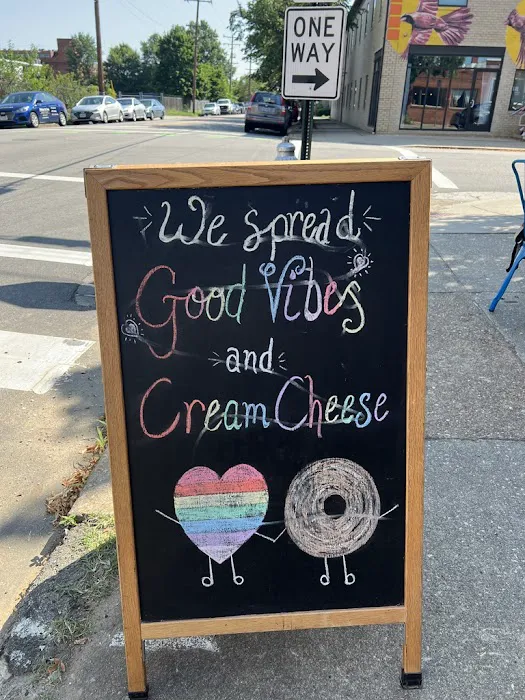 ONE
WAY
We spread
Good Vibes
and
Cream Cheese